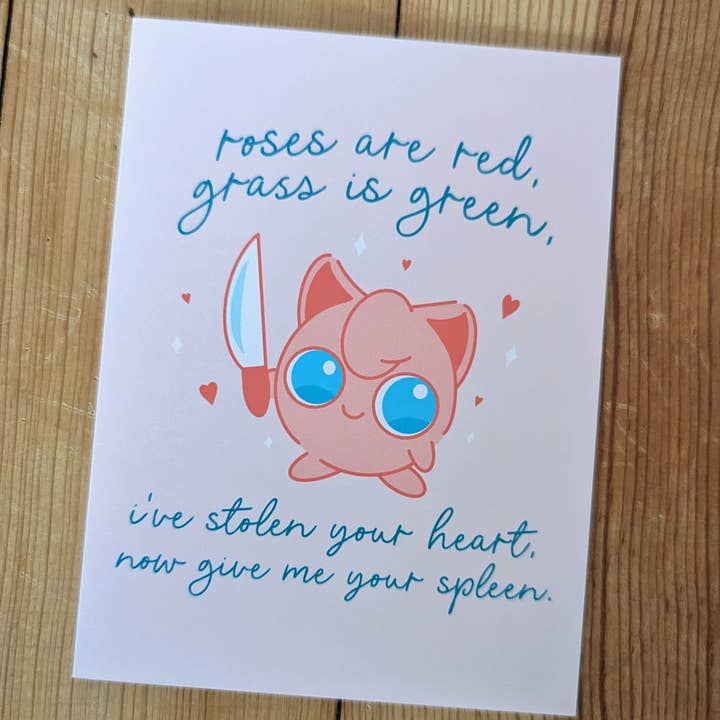 roses are red,
grass is green,
i've stolen your heart,
now give me your spleen.